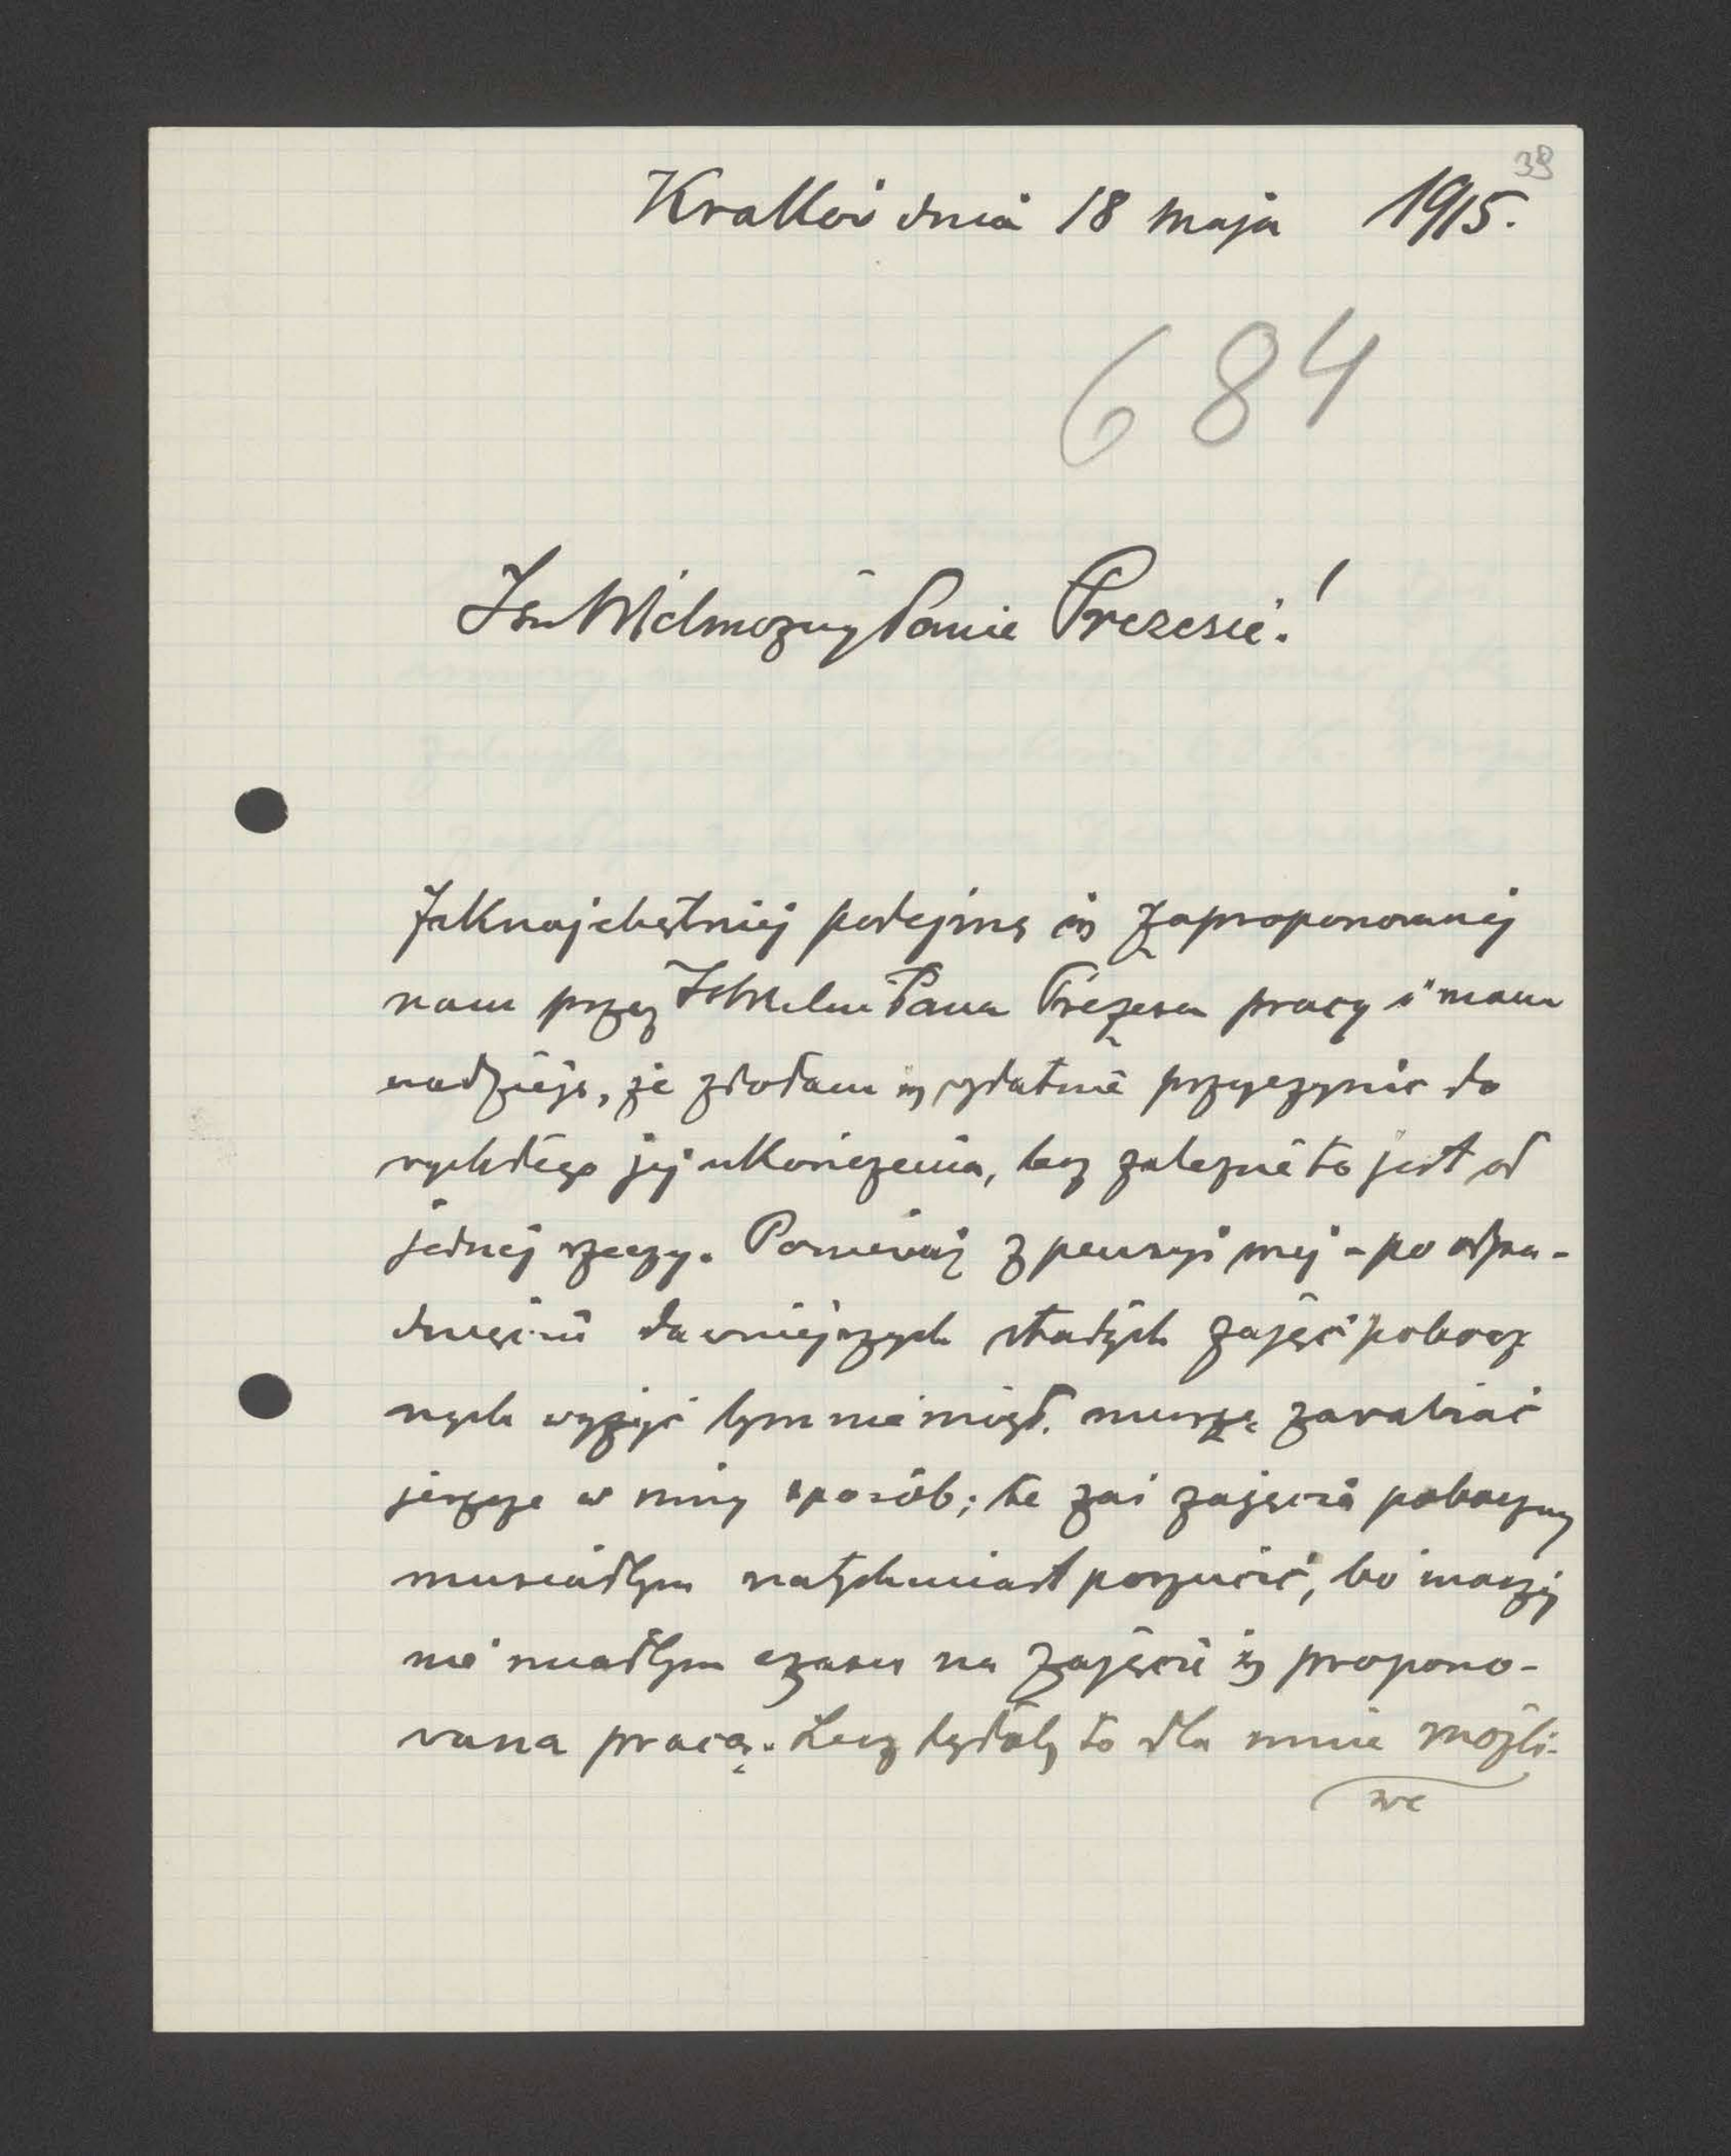 39
Kraków dnia 18 maja 1915.
684
JanWielmożny Panie Prezesie!
Jaknajchętniej podejmę się zaproponowanej
nam przez JWielm Pana Prezesa pracy i mam
nadzieję, że zdołam się wydatnie przyczynić do
rychłego jej ukończenia, lecz zależne to jest od
jednej rzeczy. Ponieważ z pensyi mej - po odpa-
dnięciu dawniejszych stałych zajęć pobocz
nych wyżyć bym nie mógł, muszę zarabiać
jeszcze w inny sposób; te zaś zajęcia poboczny
musiałbym natychmiast porzucić, bo inaczej
nie miałbym czasu na zajęcie się propono-
waną pracą. Lecz byłoby to dla mnie możli-
we